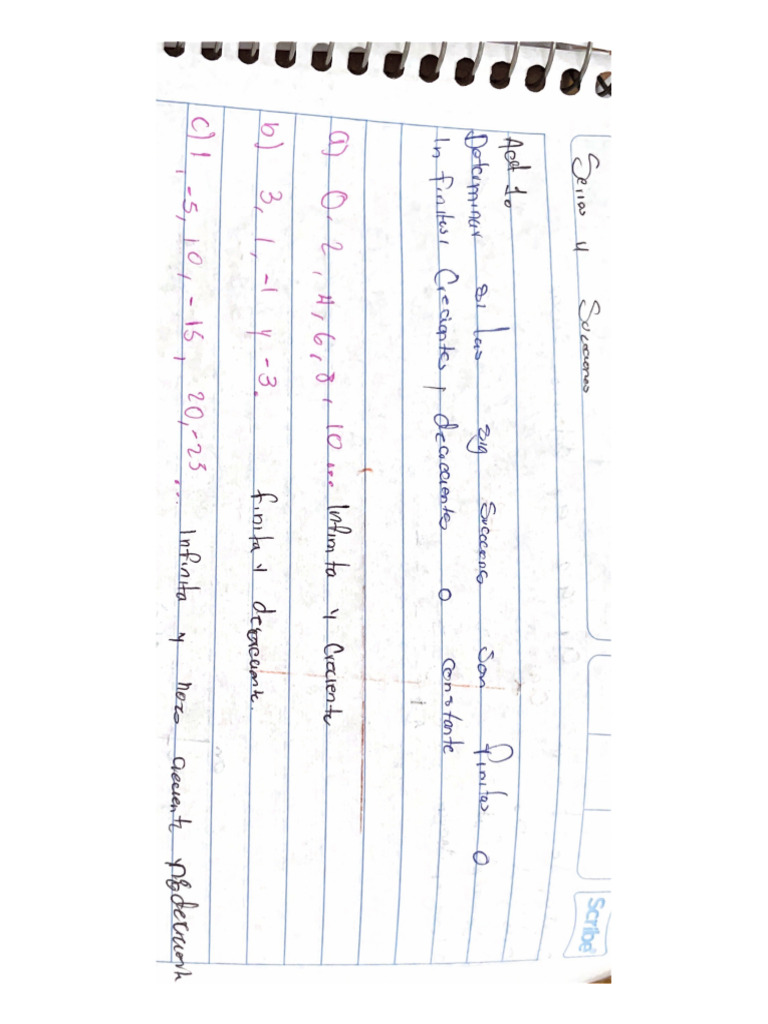 Series y Sucesiones
Scribe
Act 10
Determinar si las sig sucesiones son finitas o
infinitas, crecientes, decrecientes o constante
a) 0, 2, 4, 6, 8, 10... Infinita y Creciente
b) 3, 1, -1 y -3. finita y decreciente.
c) 1, -5, 10, -15, 20, -25... Infinita y creciente y decreciente